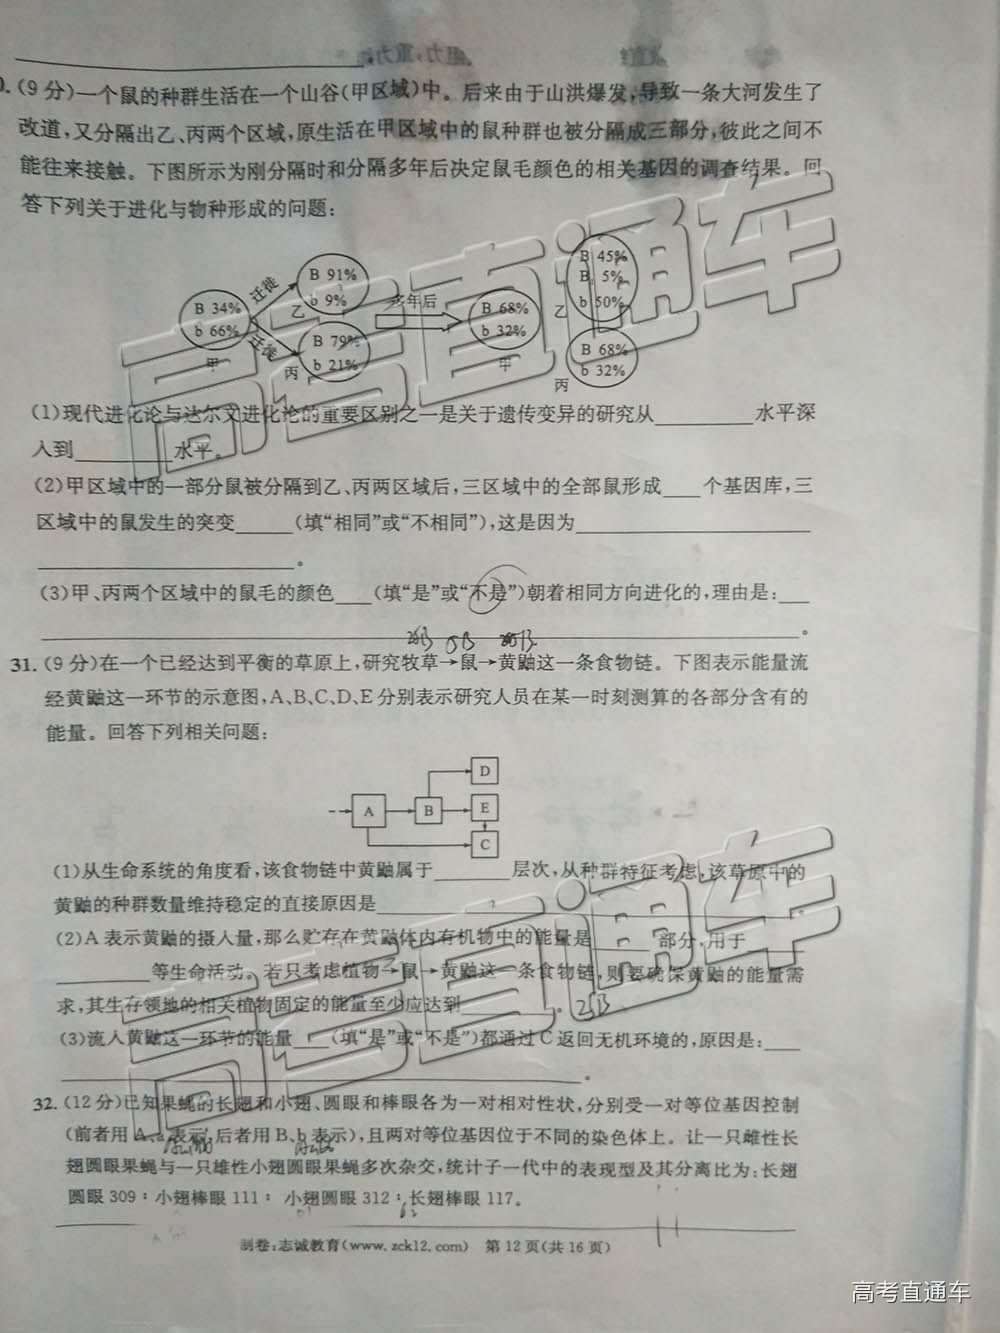 (9分)一个鼠的种群生活在一个山谷(甲区域)中。后来由于山洪爆发,导致一条大河发生了
改道,又分隔出乙、丙两个区域,原生活在甲区域中的鼠种群也被分隔成三部分,彼此之间不
能往来接触。下图所示为刚分隔时和分隔多年后决定鼠毛颜色的相关基因的调查结果。回
答下列关于进化与物种形成的问题:
B 34%
b 66%
甲
迁徙
迁徙
B 91%
b 9%
乙
B 79%
b 21%
丙
多年后
B 68%
b 32%
甲
B 45%
B 5%
b 50%
乙
B 68%
b 32%
丙
(1)现代进化论与达尔文进化论的重要区别之一是关于遗传变异的研究从________水平深
入到________水平。
(2)甲区域中的一部分鼠被分隔到乙、丙两区域后,三区域中的全部鼠形成___个基因库,三
区域中的鼠发生的突变_____(填“相同”或“不相同”),这是因为____________________
______________________。
(3)甲、丙两个区域中的鼠毛的颜色___(填“是”或“不是”)朝着相同方向进化的,理由是:___
____________________________________________________________。
31.(9分)在一个已经达到平衡的草原上,研究牧草→鼠→黄鼬这一条食物链。下图表示能量流
经黄鼬这一环节的示意图,A、B、C、D、E分别表示研究人员在某一时刻测算的各部分含有的
能量。回答下列相关问题:
A
B
D
E
C
(1)从生命系统的角度看,该食物链中黄鼬属于______层次,从种群特征考虑,该草原中的
黄鼬的种群数量维持稳定的直接原因是____________________________________.
(2)A表示黄鼬的摄入量,那么贮存在黄鼬体内有机物中的能量是_____部分,用于_____
________等生命活动。若只考虑植物→鼠→黄鼬这一条食物链,则要确保黄鼬的能量需
求,其生存领地的相关植物固定的能量至少应达到________。
(3)流入黄鼬这一环节的能量___(填“是”或“不是”)都通过C返回无机环境的,原因是:___
____________________________________________。
32.(12分)已知果蝇的长翅和小翅、圆眼和棒眼各为一对相对性状,分别受一对等位基因控制
(前者用A、a表示,后者用B、b表示),且两对等位基因位于不同的染色体上。让一只雌性长
翅圆眼果蝇与一只雄性小翅圆眼果蝇多次杂交,统计子一代中的表现型及其分离比为:长翅
圆眼309:小翅棒眼111:小翅圆眼312:长翅棒眼117。
制卷:志诚教育(www.zck12.com) 第12页(共16页)
高考直通车
高考直通车
高考直通车